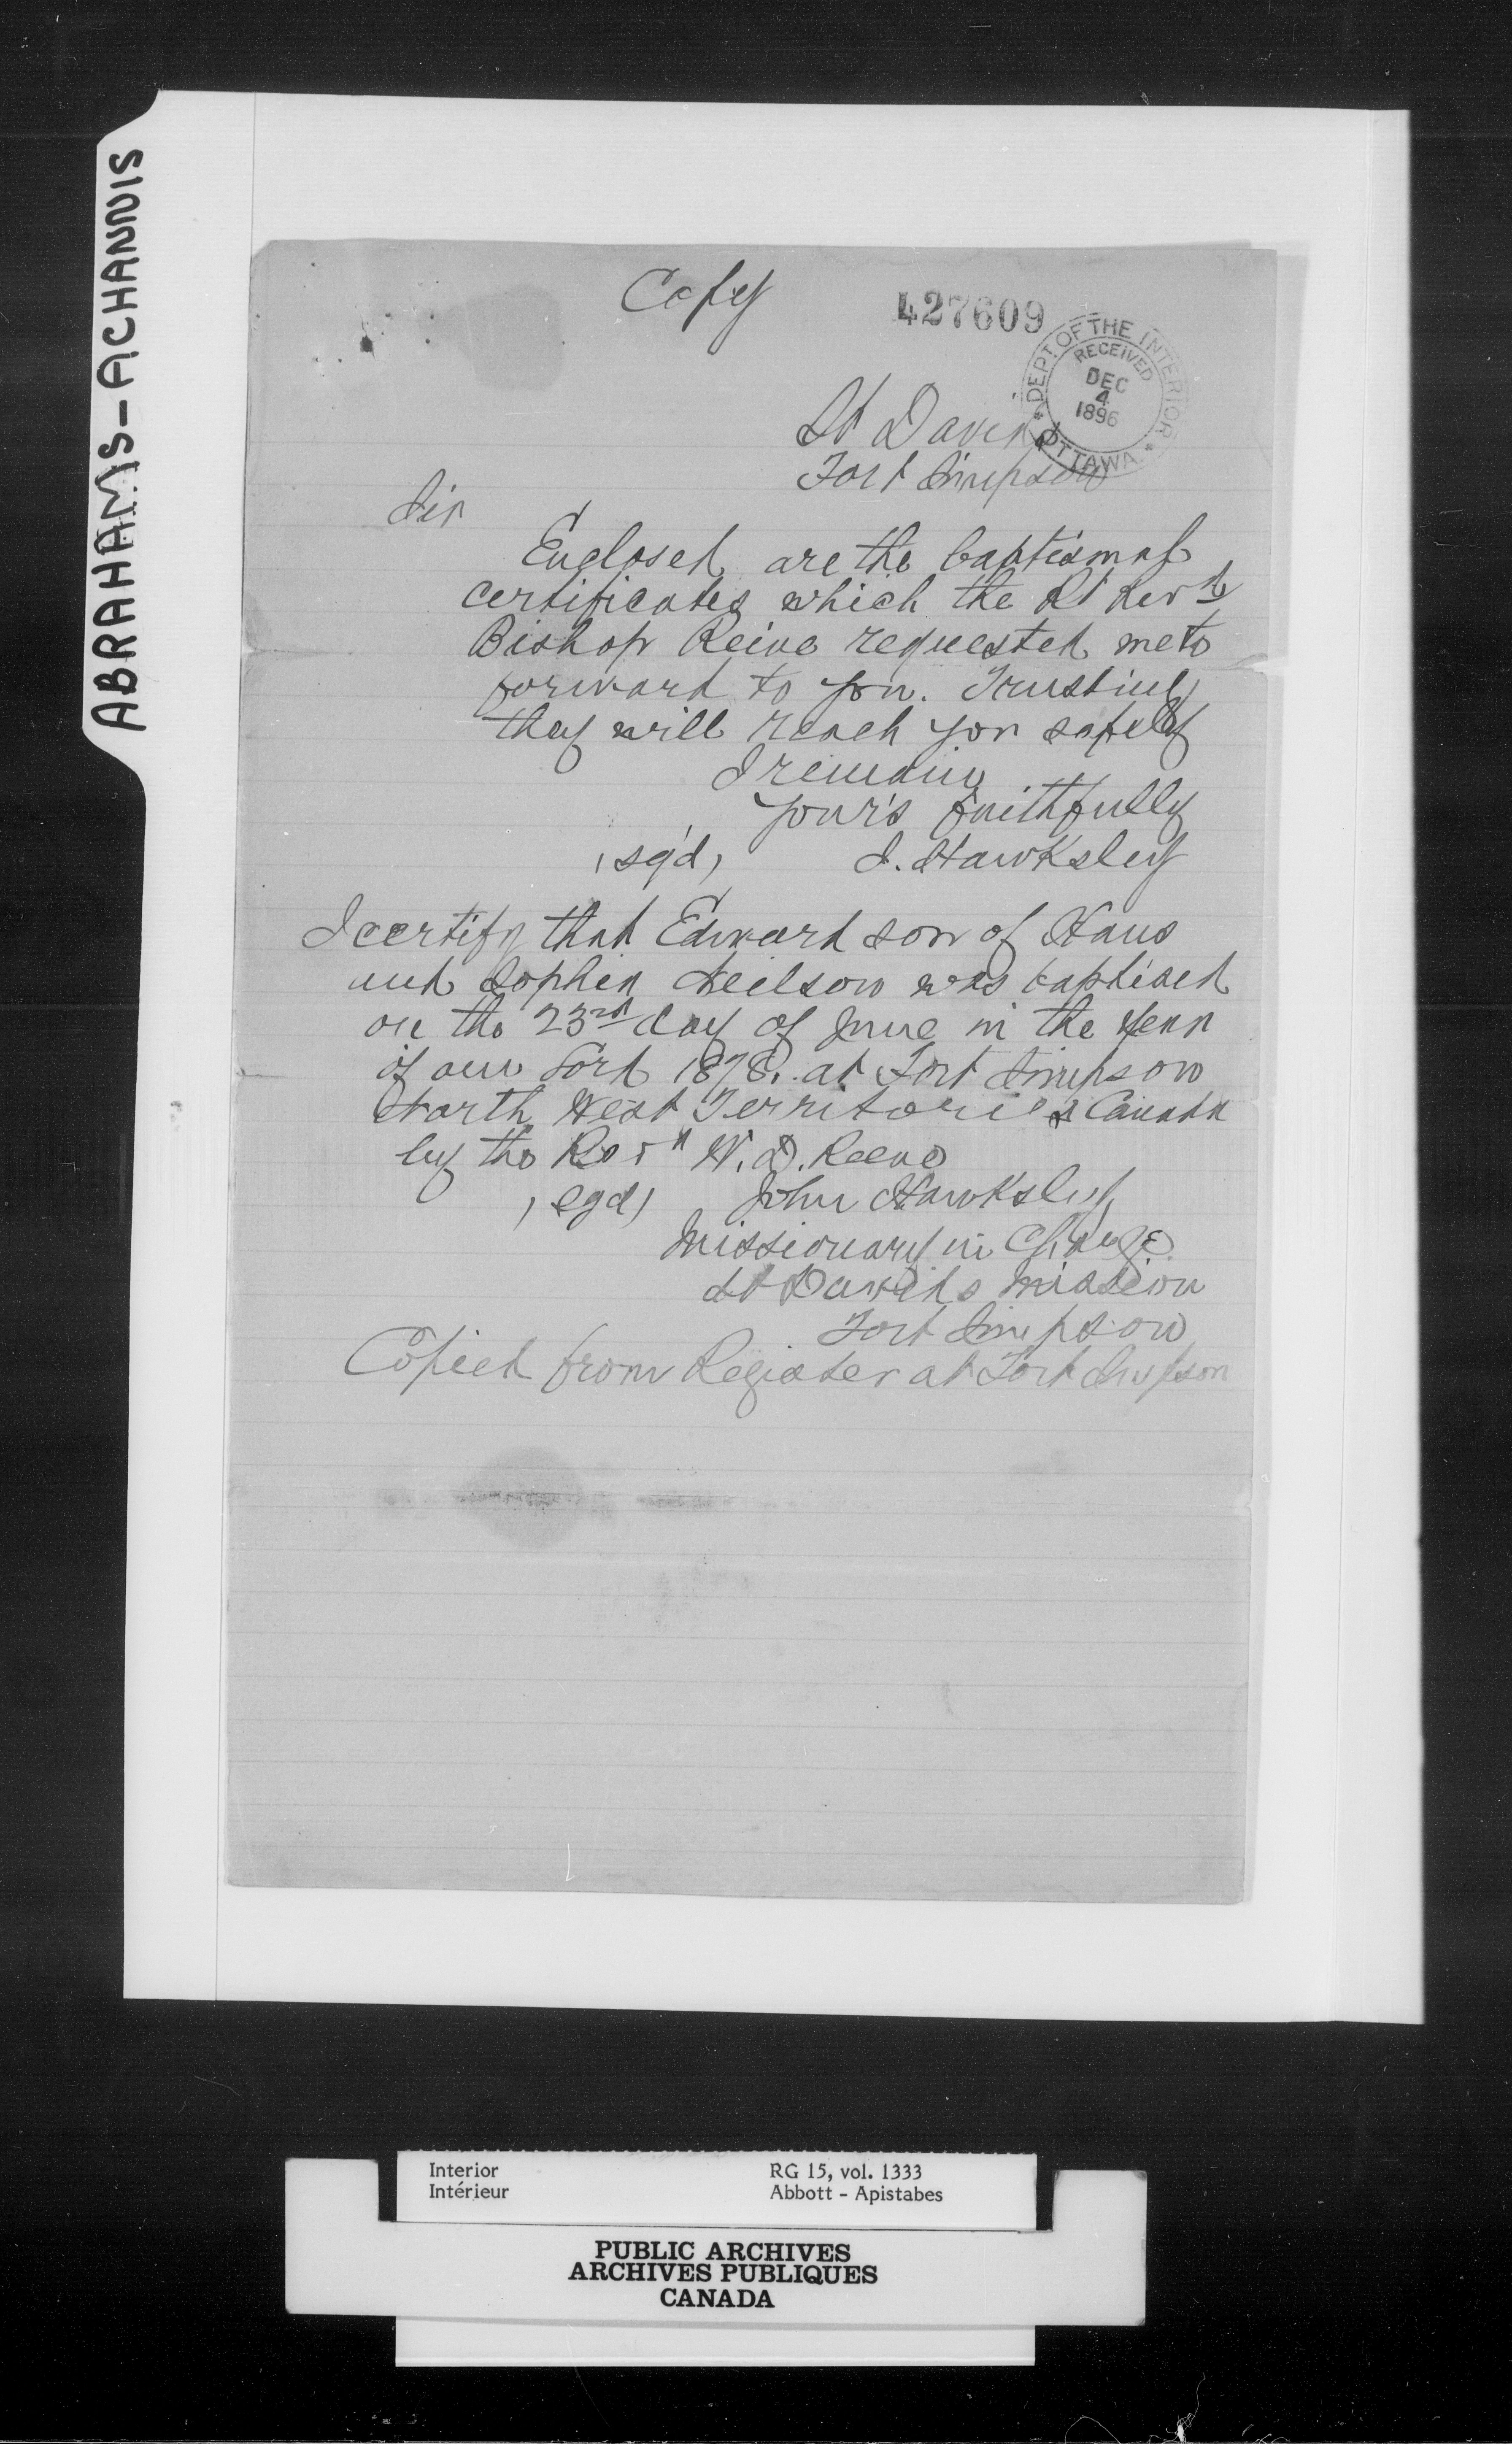 ABRAHAMS-ACHANNIS
Copy
427609
DEPT. OF THE INTERIOR
RECEIVED
DEC
4
1896
OTTAWA
St Davids
Fort Simpson
Sir
Enclosed are the baptismal
certificates which the Rt Revd
Bishop Reive requested me to
forward to you. Trusting
they will reach you safely
I remain
your's faithfully
(sg'd) J. Hawksley
I certify that Edward son of Hans
and Sophia Neilson was baptised
on the 23rd day of June in the year
of our Lord 1878. at Fort Simpson
North West Territories Canada
by the Revd W. D. Reeve
(sgd) John Hawksley
Missionary in Charge
St Davids Mission
Fort Simpson
Copied from Register at Fort Simpson
Interior RG 15, vol. 1333
Intérieur Abbott - Apistabes
PUBLIC ARCHIVES
ARCHIVES PUBLIQUES
CANADA